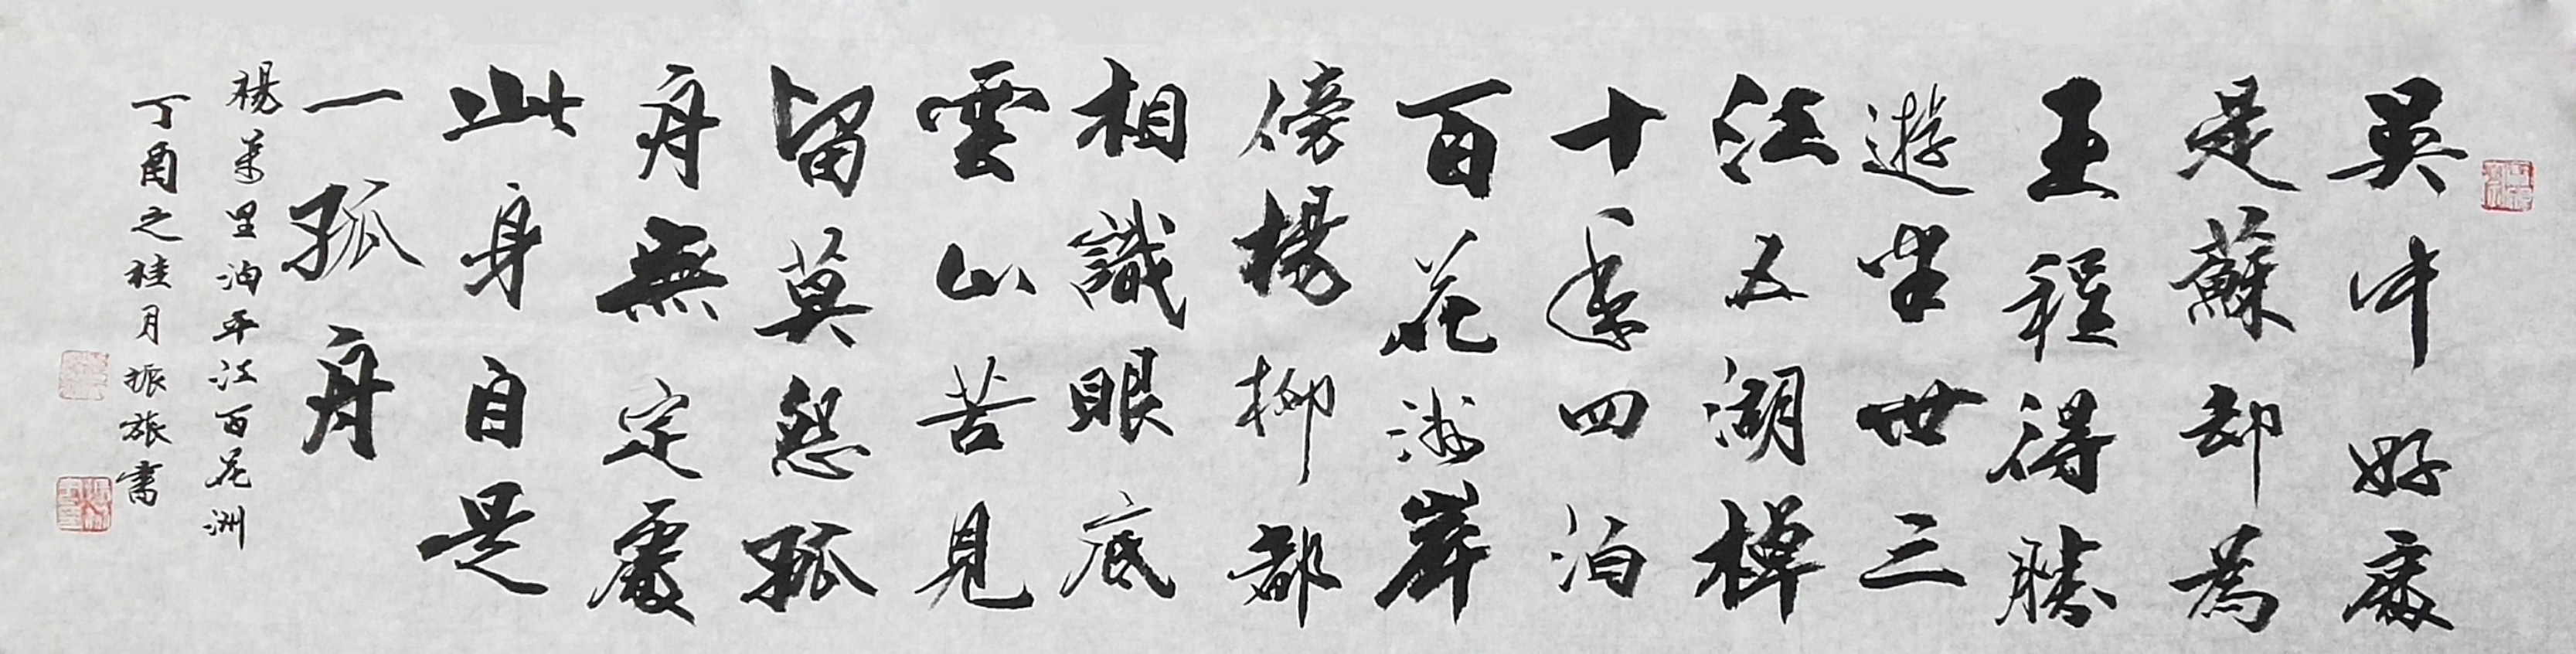 吴中好處
是蘇却為
王程得勝
遊半世三
江五湖棹
十年四泊
百花洲岸
傍楊柳都
相識眼底
雲山苦見
留莫怨孤
舟無定處
此身自是
一孤舟
楊萬里泊平江百花洲
丁酉之桂月振旅書